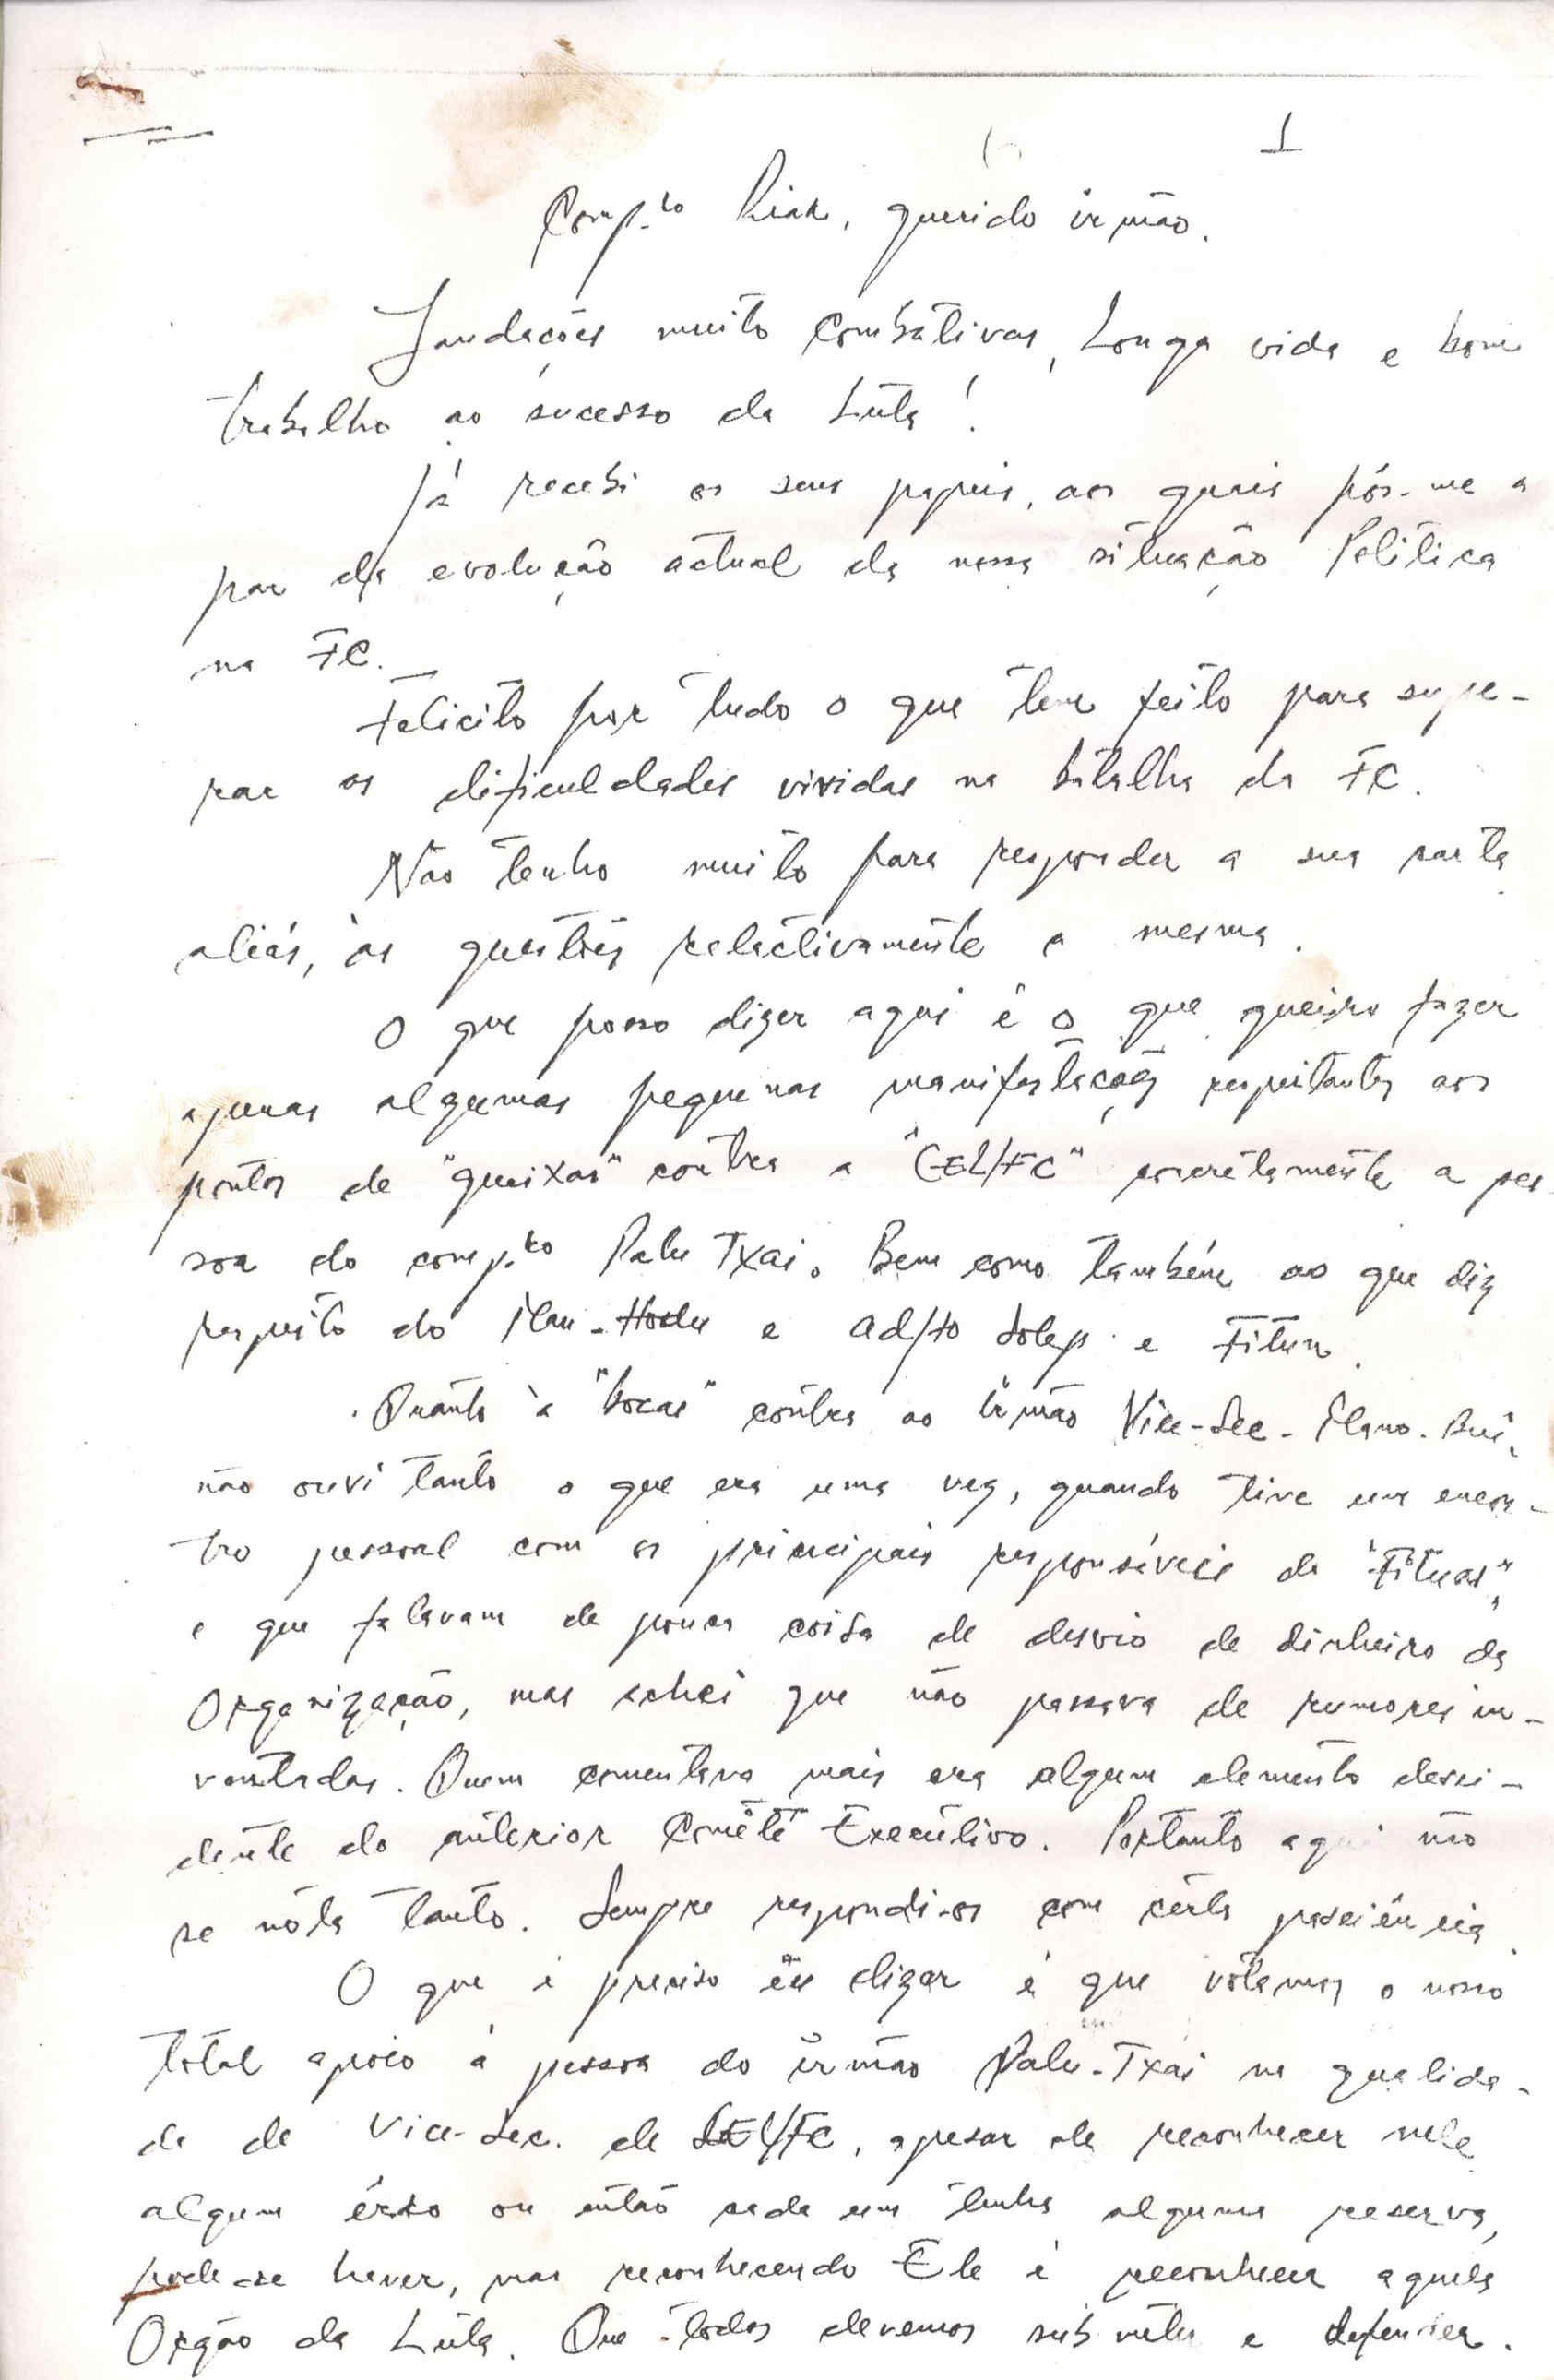 1
Comp.ro Riak, querido irmão.
Saudações muito combativas, Longa vida e bom
trabalho ao sucesso da Lúta!
Já recebi os seus papeis, aos quais pós-me a
par da evolução actual da nossa situação Politica
na FC.
Felicito por tudo o que tem feito para supe-
rar as dificuldades vividas na batalha da FC.
Não tenho muito para responder a sua carta
aliás, às questões relactivamente a mesma.
O que posso dizer aqui é o que queiro fazer
apenas algumas pequenas manifestações respeitantes aos
pontos de "queixas" contra a "CEL/FC" concretamente a pes-
soa do comp.ro Palu Txai. Bem como também ao que diz
respeito do Mau-Hodu e Ad/to Solep e Fitun.
Quanto à "bocas" contra ao irmão Vice-Sec-
não ouvi tanto o que era uma vez, quando tive um encon-
tro pessoal com os principais responsáveis da "Fituas",
e que falavam de pouca coisa de desvio de dinheiro da
Organização, mas achei que não passava de rumores in-
ventadas. Quem comentava mais era algum elemento dessi-
dente do anterior Comité Executivo. Portanto aqui não
se nóta tanto. Sempre respondi-os com cérta pasciência.
O que é preciso eu dizer é que vótamos o nosso
total apoio á pessoa do irmão Palu-Txai na qualida-
de de Vice-Sec. de CEL/FC, apesar de reconhecer nele
algum érro ou então cada um tenha alguma reserva,
pode-se haver, mas reconhecendo Ele é reconhecer aquela
Orgão da Lúta. Que todos devemos submeter e defender.